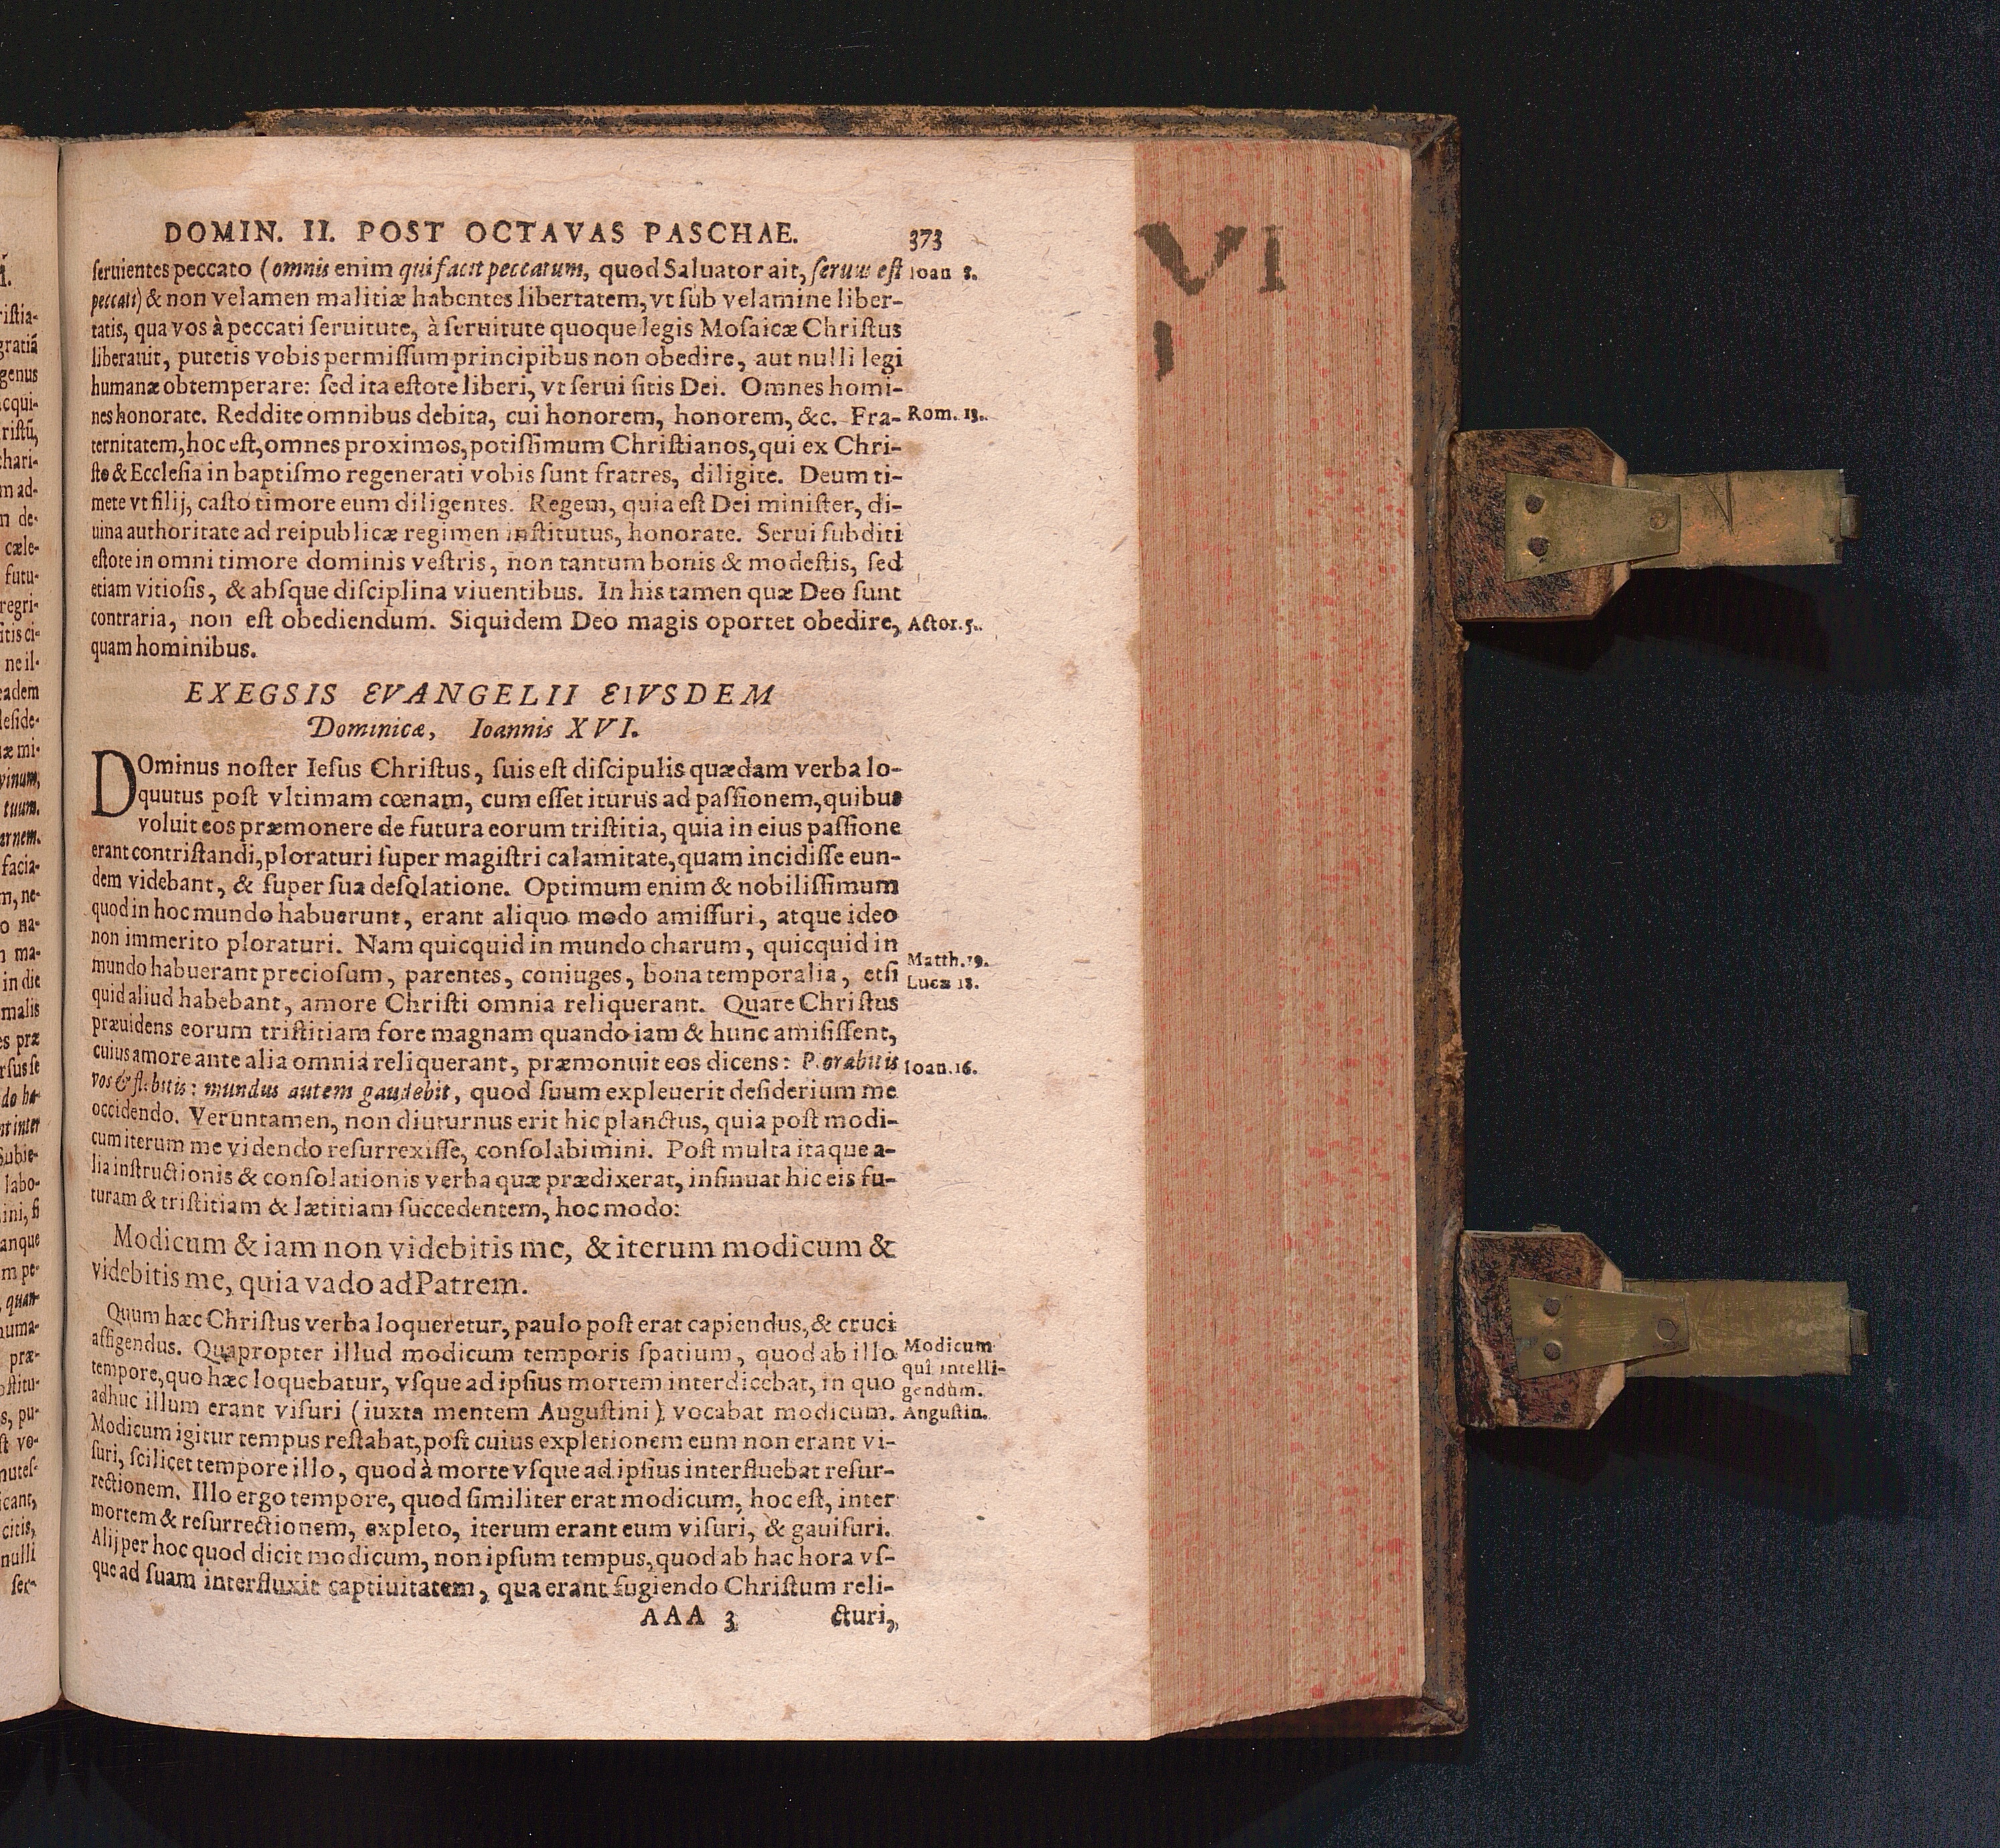 DOMIN. II. POST OCTAVAS PASCHAE. 373
ſeruientes peccato (omnis enim qui facit peccatum, quod Saluator ait, ſeruus eſt Ioan 8.
peccati) & non velamen malitiæ habentes libertatem, vt ſub velamine liber-
tatis, qua vos à peccati ſeruitute, à ſeruitute quoque legis Moſaicæ Chriſtus
liberauit, putetis vobis permiſſum principibus non obedire, aut nulli legi
humanæ obtemperare: ſed ita eſtote liberi, vt ſerui ſitis Dei. Omnes homi-
nes honorate. Reddite omnibus debita, cui honorem, honorem, &c. Fra- Rom. 13.
ternitatem, hoc eſt, omnes proximos, potiſſimum Chriſtianos, qui ex Chri-
ſto & Eccleſia in baptiſmo regenerati vobis ſunt fratres, diligite. Deum ti-
mete vt filij, caſto timore eum diligentes. Regem, quia eſt Dei miniſter, di-
uina authoritate ad reipublicæ regimen inſtitutus, honorate. Serui ſubditi
eſtote in omni timore dominis veſtris, non tantum bonis & modeſtis, ſed
etiam vitioſis, & abſque diſciplina viuentibus. In his tamen quæ Deo ſunt
contraria, non eſt obediendum. Siquidem Deo magis oportet obedire, Actor. 5.
quam hominibus.
EXEGSIS EVANGELII EIVSDEM
Dominicæ, Ioannis XVI.
DOminus noſter Ieſus Chriſtus, ſuis eſt diſcipulis quædam verba lo-
quutus poſt vltimam cœnam, cum eſſet iturus ad paſſionem, quibus
voluit eos præmonere de futura eorum triſtitia, quia in eius paſſione
erant contriſtandi, ploraturi ſuper magiſtri calamitate, quam incidiſſe eun-
dem videbant, & ſuper ſua deſolatione. Optimum enim & nobiliſſimum
quod in hoc mundo habuerunt, erant aliquo modo amiſſuri, atque ideo
non immerito ploraturi. Nam quicquid in mundo charum, quicquid in
mundo habuerant precioſum, parentes, coniuges, bona temporalia, etſi Matth. 19.
quid aliud habebant, amore Chriſti omnia reliquerant. Quare Chriſtus Lucæ 18.
præuidens eorum triſtitiam fore magnam quando iam & hunc amiſiſſent,
cuius amore ante alia omnia reliquerant, præmonuit eos dicens: Plorabitis Ioan. 16.
vos & flebitis: mundus autem gaudebit, quod ſuum expleuerit deſiderium me
occidendo. Veruntamen, non diuturnus erit hic planctus, quia poſt modi-
cum iterum me videndo reſurrexiſſe, conſolabimini. Poſt multa itaque a-
lia inſtructionis & conſolationis verba quæ prædixerat, inſinuat hic eis fu-
turam & triſtitiam & lætitiam ſuccedentem, hoc modo:
Modicum & iam non videbitis me, & iterum modicum &
videbitis me, quia vado ad Patrem.
Quum hæc Chriſtus verba loqueretur, paulo poſt erat capiendus, & cruci
affigendus. Quapropter illud modicum temporis ſpatium, quod ab illo Modicum
tempore, quo hæc loquebatur, vſque ad ipſius mortem interdicebat, in quo quî intelli-
gendum.
adhuc illum erant viſuri (iuxta mentem Auguſtini) vocabat modicum. Auguſtin.
Modicum igitur tempus reſtabat, poſt cuius expletionem eum non erant vi-
ſuri, ſcilicet tempore illo, quod à morte vſque ad ipſius interfluebat reſur-
rectionem. Illo ergo tempore, quod ſimiliter erat modicum, hoc eſt, inter
mortem & reſurrectionem, expleto, iterum erant eum viſuri, & gauiſuri.
Alij per hoc quod dicit modicum, non ipſum tempus, quod ab hac hora vſ-
que ad ſuam interfluxit captiuitatem, qua erant fugiendo Chriſtum reli-
AAA 3 cturi,
VI